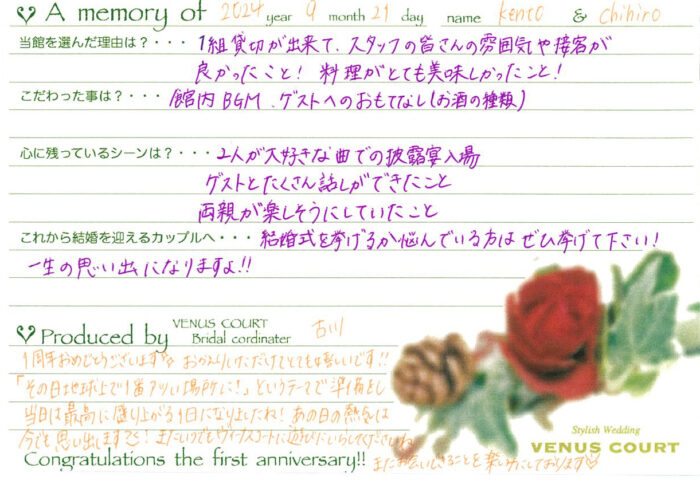 A memory of 2024 year 9 month 21 day name kento & chihiro
当館を選んだ理由は?・・・1組貸切が出来て、スタッフの皆さんの雰囲気や接客が
良かったこと! 料理がとても美味しかったこと!
こだわった事は?・・・館内BGM、ゲストへのおもてなし(お酒の種類)
心に残っているシーンは?・・・2人が大好きな曲での披露宴入場
ゲストとたくさん話しができたこと
両親が楽しそうにしていたこと
これから結婚を迎えるカップルへ・・・結婚式を挙げるか悩んでいる方はぜひ挙げて下さい!
一生の思い出になりますよ!!
Produced by VENUS COURT
Bridal cordinater 古川
1周年おめでとうございます☆ お祝いしていただけてとても嬉しいです!!
「その日地球上で1番アツい場所に!」というテーマで準備をし
当日は最高に盛り上がる1日になりましたね! あの日の熱気は
今でも思い出します! またいつでもヴィーナスコートに遊びにいらしてくださいね
Congratulations the first anniversary!! またお会いできることを楽しみにしております♡
Stylish Wedding
VENUS COURT